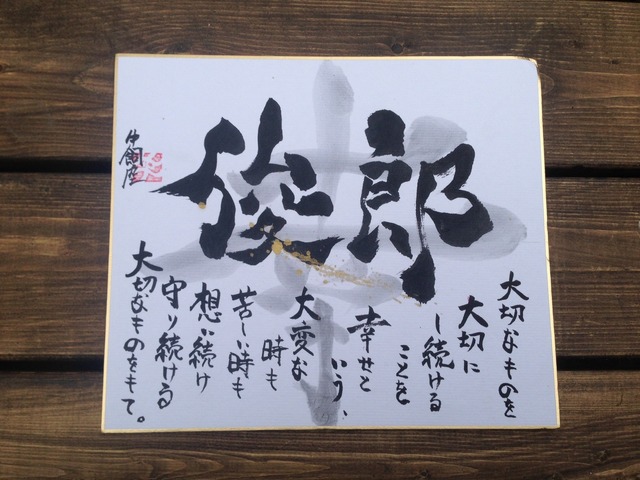 俊郎
大切なものを
大切に
し続ける
ことを
幸せと
いう、
大変な
時も
苦しい時も
想い続け
守り続ける
大切なものをもて。
牛飼座